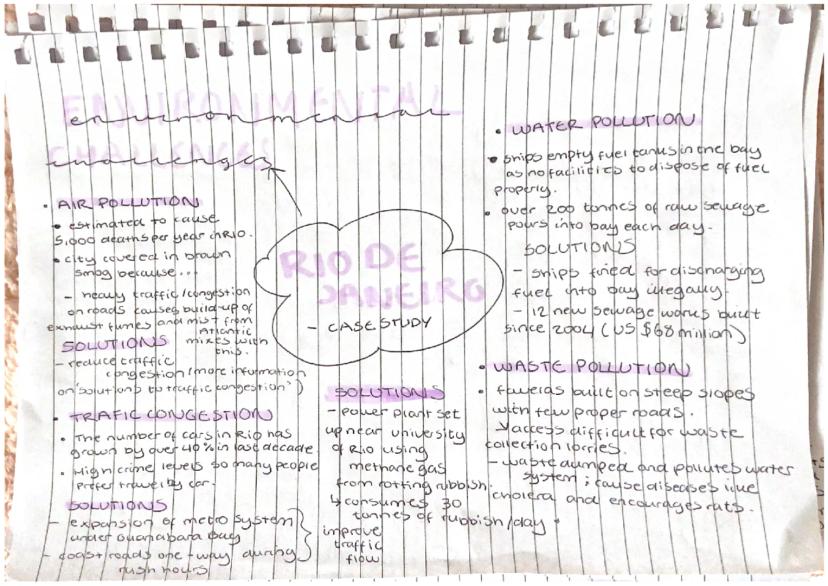 ENVIRONMENTAL
environmental
CHALLENGES
challenges
RIO DE
JANEIRO
- CASE STUDY
• AIR POLLUTION
• estimated to cause
5,000 deaths per year in RIO.
• city covered in brown
smog because...
- heavy traffic/congestion
on roads causes build-up of
exhaust fumes and mist from
Atlantic
mixes with
this.
SOLUTIONS
- reduce traffic
congestion (more information
on 'solutions to traffic congestion')
• TRAFIC CONGESTION
• The number of cars in Rio has
grown by over 40% in last decade
• High crime levels so many people
prefer travel by car.
SOLUTIONS
- expansion of metro system
under Guanabara Bay
- coast roads one-way during
rush hours
improve
traffic
flow
SOLUTIONS
- power plant set
up near university
of Rio using
methane gas
from rotting rubbish.
↳ consumes 30
tonnes of rubbish/day.
• WATER POLLUTION
• ships empty fuel tanks in the bay
as no facilities to dispose of fuel
properly.
• over 200 tonnes of raw sewage
pours into bay each day.
SOLUTIONS
- ships fined for discharging
fuel into bay illegally.
- 12 new sewage works built
since 2004 (US $68 million)
• WASTE POLLUTION
• favelas built on steep slopes
with few proper roads.
↳ access difficult for waste
collection lorries.
- waste dumped and pollutes water
system; cause diseases like
cholera and encourages rats.